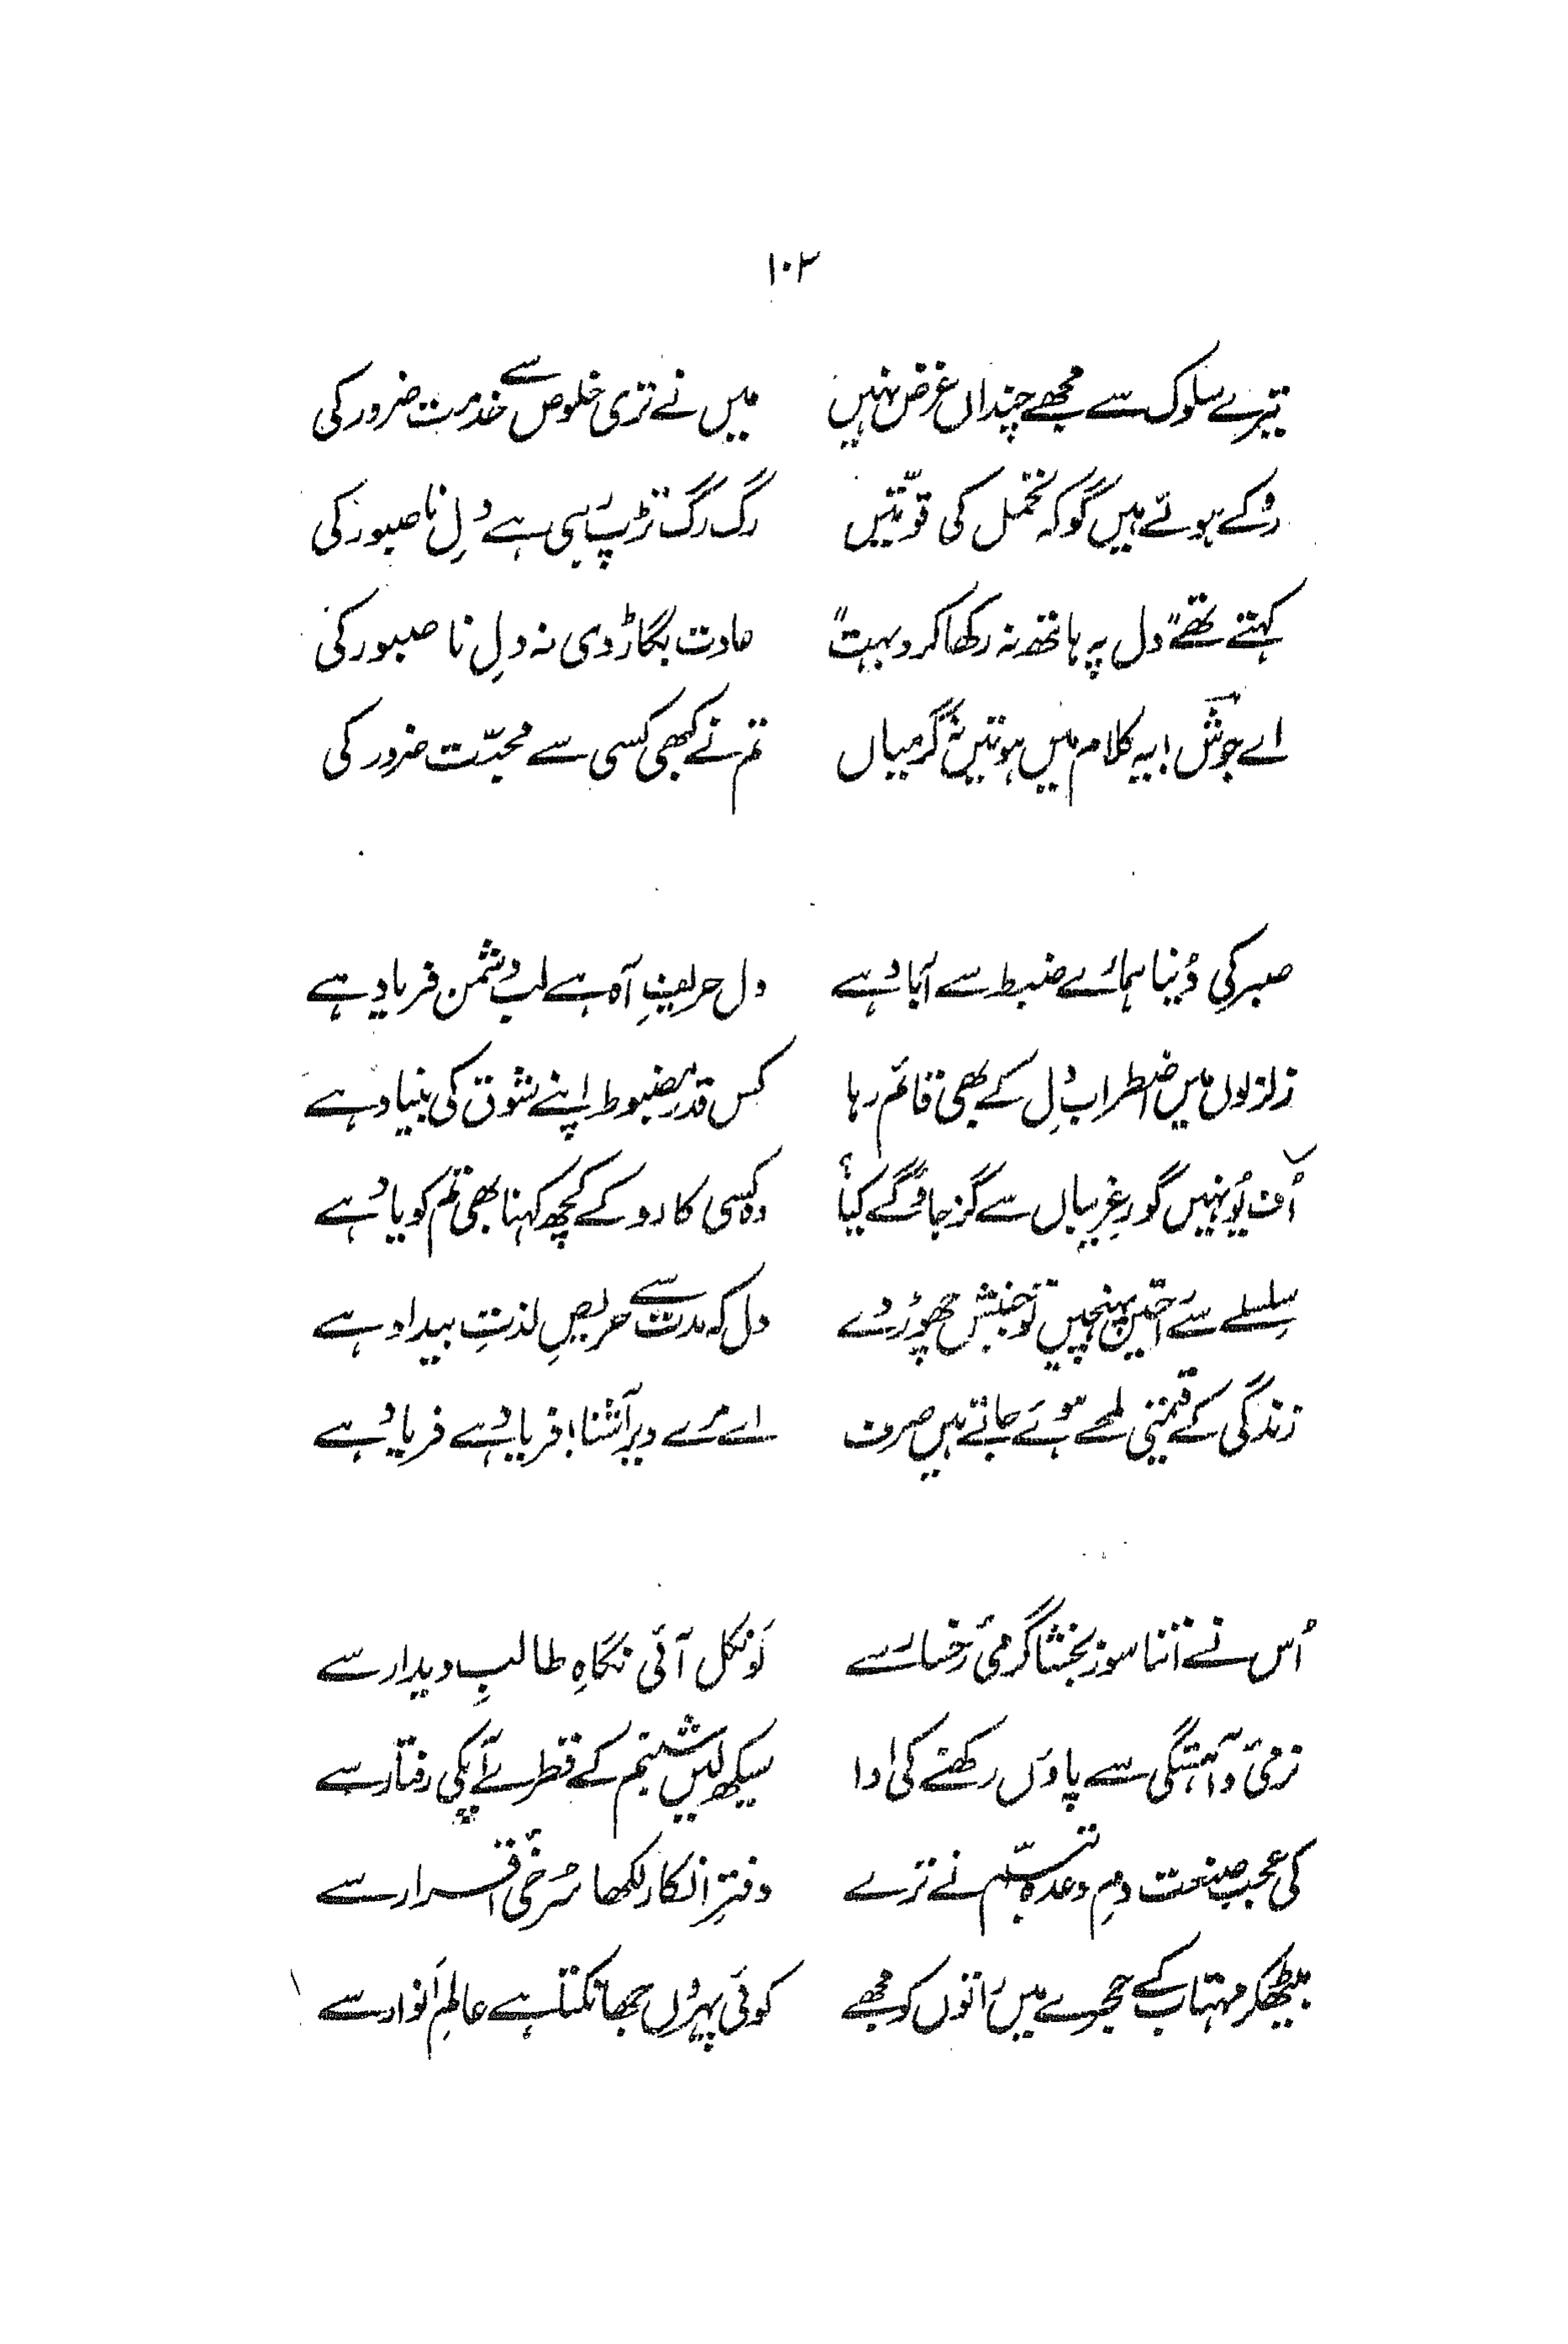 ۱۰۲
تیرے سلوک سے مجھے چنداں غرض نہیں میں نے تری خلوص سے خدمت ضرور کی
روکے ہوئے ہیں گو کہ تحمّل کی قوّتیں رگ رگ تڑپ رہی ہے دلِ ناصبور کی
کہتے تھے "دل پہ ہاتھ نہ رکھا کرو بہت" عادت بگاڑ دی نہ دلِ ناصبور کی
اے جوشؔ! یہ کلام میں ہوتیں نہ گرمیاں تم نے کبھی کسی سے محبّت ضرور کی
صبر کی دُنیا ہمارے ضبط سے آباد ہے دل حریفِ آہ ہے لب دشمن فریاد ہے
زلزلوں میں اضطرابِ دل کے بھی قائم رہا کس قدر مضبوط اپنے شوق کی بنیاد ہے
اُف یُونہیں گورِ غریباں سے گزر جاؤ گے کیا؟ وہ کسی کا رو کے کچھ کہنا بھی تم کو یاد ہے
سِلسلے سے راحتیں پہنچیں تو جنبش چھوڑ دے دل کہ مدت سے حریصِ لذتِ بیداد ہے
زندگی کے قیمتی لمحے ہوئے جاتے ہیں صرف اے مرے دیر آشنا! فریاد ہے فریاد ہے
اُس نے اتنا سوز بخشا گرمیٔ رخسار سے لَو نکل آئی نگاہِ طالبِ دیدار سے
نرمیٔ و آہستگی سے پاؤں رکھنے کی ادا سیکھ لیں شبنم کے قطرے آپ کی رفتار سے
کی عجب صنعت دمِ وعدہ تبسّم نے ترے دفترِ انکار لکھا سُرخیٔ اقرار سے
بیٹھکر مہتاب کے حجرے میں راتوں کو مجھے کوئی پہروں جھانکتا ہے عالمِ انوار سے